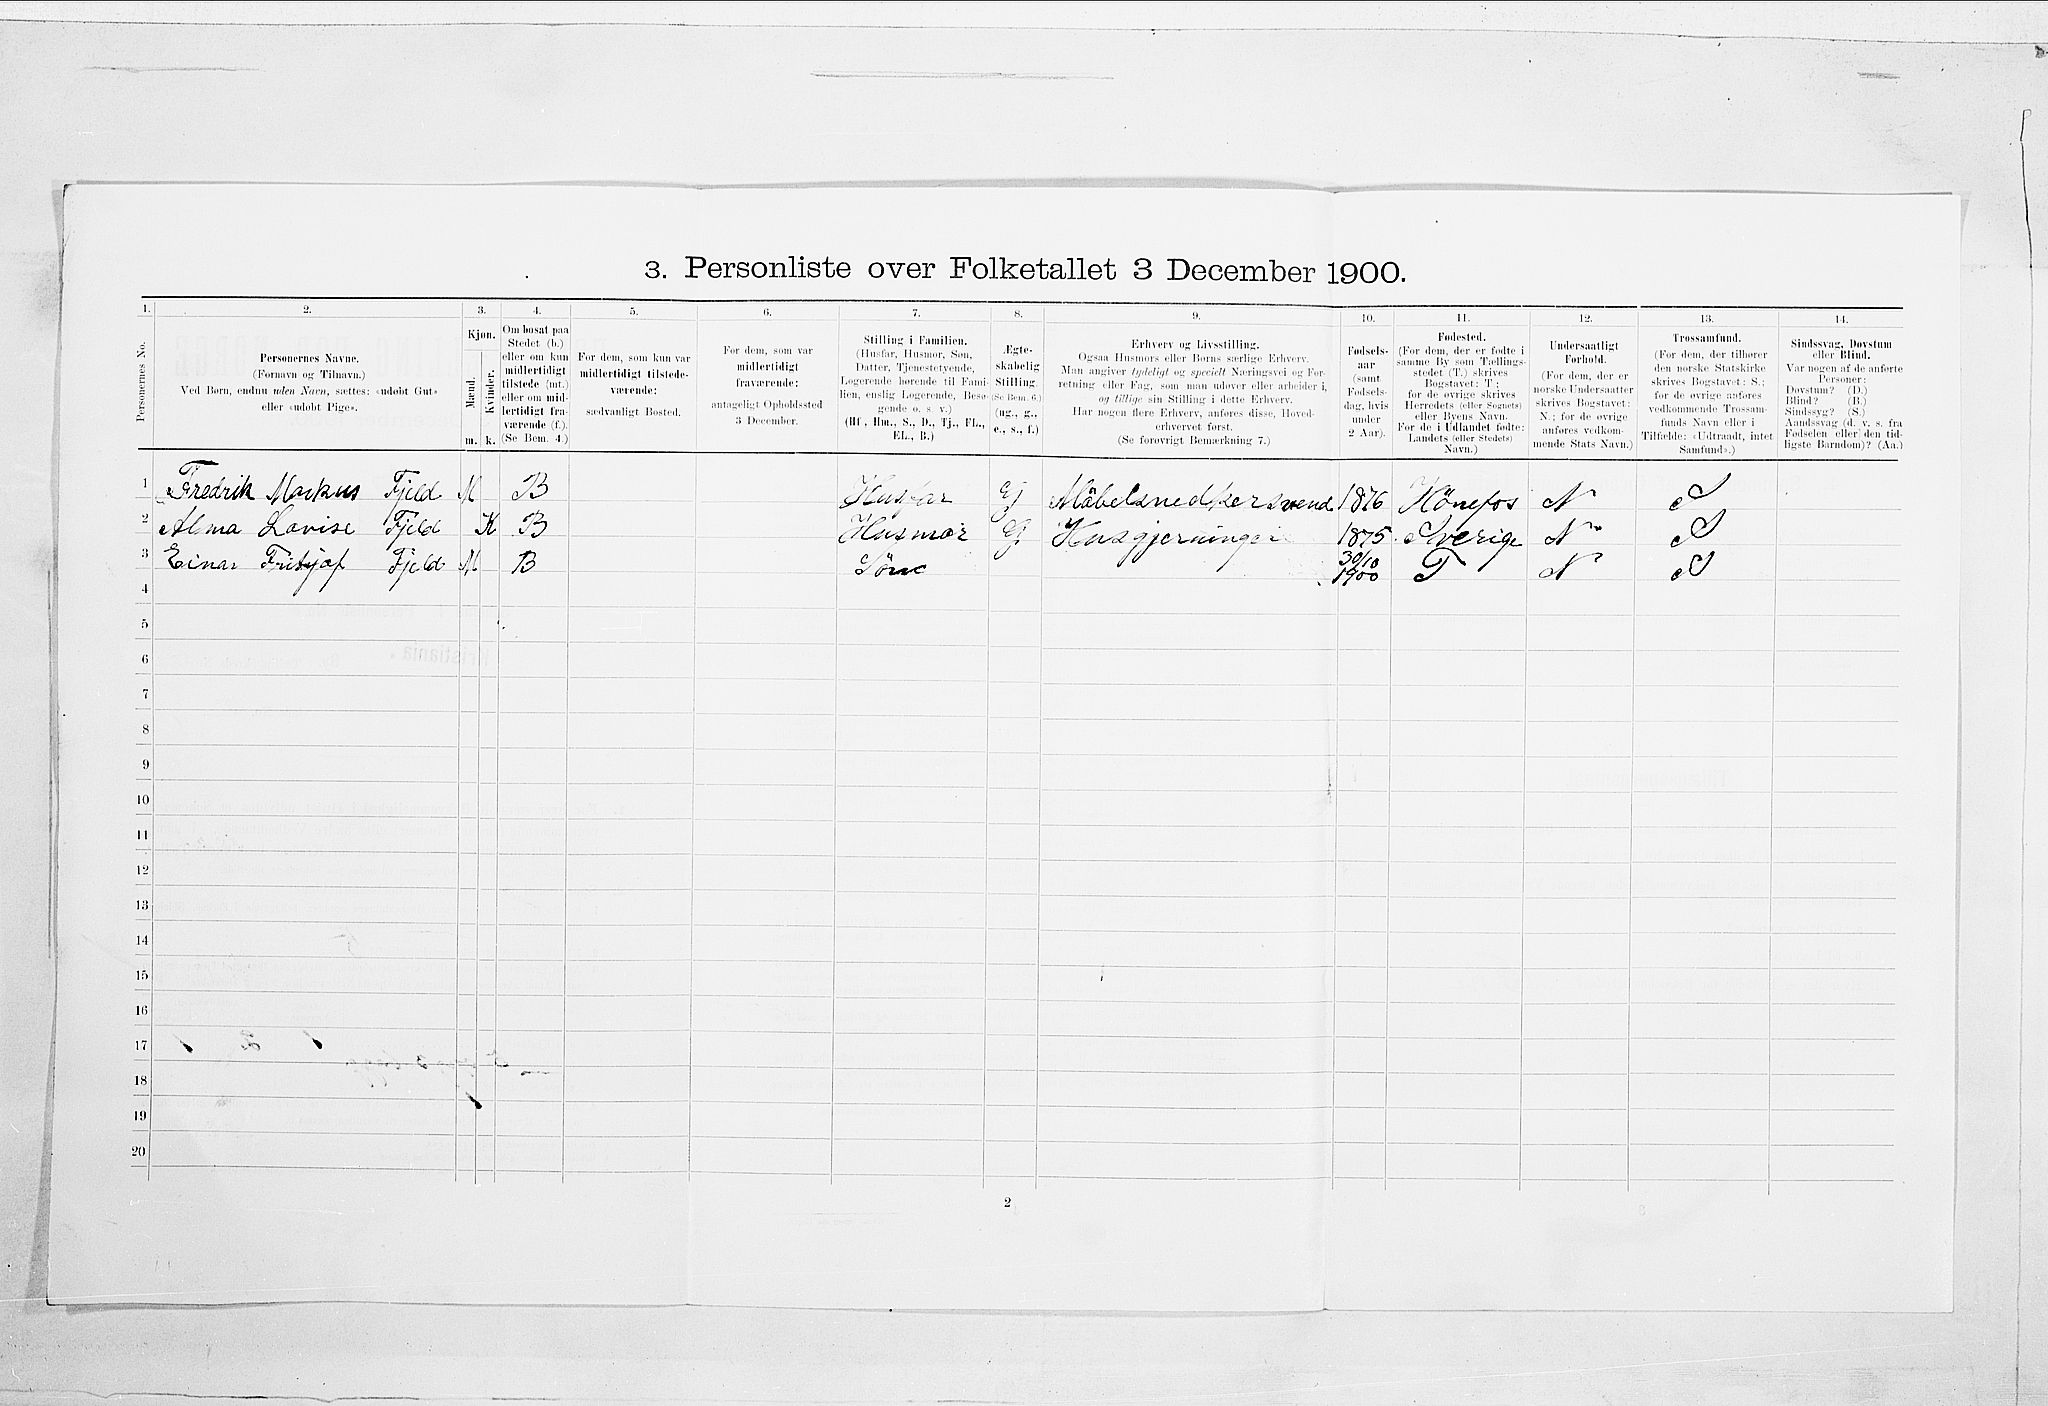 3. Personliste over Folketallet 3 December 1900.
1. 2. 3. 4. 5. 6. 7. 8. 9. 10. 11. 12. 13. 14.
Personernes No.
Personernes Navne.
(Fornavn og Tilnavn.)
Ved Børn, endnu uden Navn, sættes: «udøbt Gut»
eller «udøbt Pige».
Kjøn.
Mænd.
Kvinder.
m. k.
Om bosat paa
Stedet (b.)
eller om kun
midlertidigt
tilstede (mt.)
eller om mid-
lertidigt fra-
værende (f.).
(Se Bem. 4.)
For dem, som kun var
midlertidigt tilstede-
værende:
sædvanligt Bosted.
For dem, som var
midlertidigt
fraværende:
antageligt Opholdssted
3 December.
Stilling i Familien.
(Husfar, Husmor, Søn,
Datter, Tjenestetyende,
Logerende hørende til Fami-
lien, enslig Logerende, Besø-
gende o. s. v.)
(Hf., Hm., S., D., Tj., FL.,
EL., B.)
Ægte-
skabelig
Stilling.
(Se Bem. 6.)
(ug., g.,
e., s., f.)
Erhverv og Livsstilling.
Ogsaa Husmors eller Børns særlige Erhverv.
Man angiver tydeligt og specielt Næringsvei og For-
retning eller Fag, som man udøver eller arbeider i,
og tillige sin Stilling i dette Erhverv.
Har nogen flere Erhverv, anføres disse, Hoved-
erhvervet først.
(Se forøvrigt Bemærkning 7.)
Fødsels-
aar
(samt
Fødsels-
dag, hvis
under
2 Aar).
Fødested.
(For dem, der er fødte i
samme By som Tællings-
stedet (T.) skrives
Bogstavet: T;
for de øvrige skrives
Herredets (eller Sognets)
eller Byens Navn.
For de i Udlandet fødte:
Landets (eller Stedets)
Navn.)
Undersaatligt
Forhold.
(For dem, der er
norske Undersaatter
skrives Bogstavet:
N.; for de øvrige
anføres vedkom-
mende Stats Navn.)
Trossamfund.
(For dem, der tilhører
den norske Statskirke
skrives Bogstavet: S.;
for de øvrige anføres
vedkommende Trossam-
funds Navn eller i
Tilfælde: «Udtraadt, intet
Samfund».)
Sindssvag, Døvstum
eller Blind.
Var nogen af de anførte
Personer:
Døvstum? (D.)
Blind? (B.)
Sindssyg? (S.)
Aandssvag (d. v. s. fra
Fødselen eller den tid-
ligste Barndom)? (Aa.)
1 Fredrik Markus Fjeld M B Husfar G Møbelsnedkersvend 1876 Hønefos N S
2 Alma Lovise Fjeld K B Husmor G Husgjerninger 1875 Sverige N S
3 Einar Fritjof Fjeld M B Søn 30/10 1900 T N S
4
5
6
7
8
9
10
11
12
13
14
15
16
17
18
19
20
2